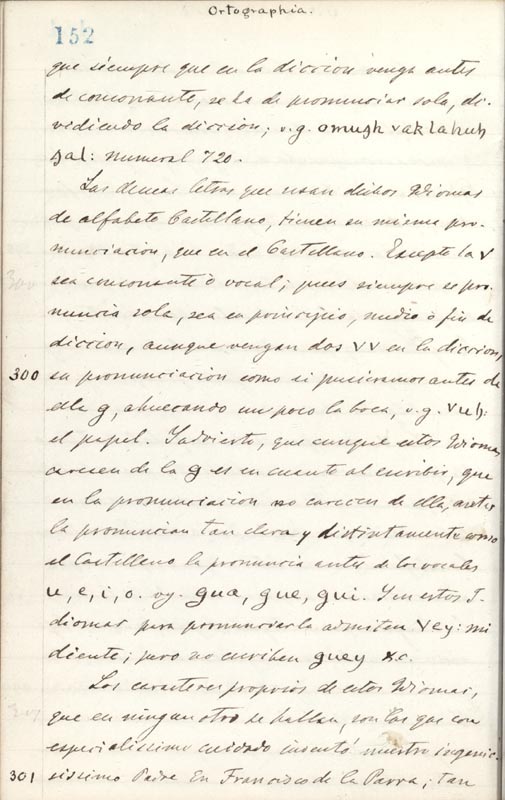 Ortographia.
152
que siempre que en la diccion venga antes
de consonante, se ha de pronunciar sola, di-
vediendo la diccion; v.g. omugh vaklahuh
gal: numeral 720.
Las demas letras que usan dichos Idiomas
de alfabeto Castellano, tienen su misma pro-
nunciacion, que en el Castellano. Excepto la v
sea consonante ò vocal; pues siempre se pro-
nuncia sola, sea en principio, medio ò fin de
diccion, aunque vengan dos VV en la diccion,
300 su pronunciacion como si pusieramos antes de
ella g, ahuecando un poco la boca, v.g. vuh:
el papel. Y advierto, que aunque estos Idiomas
carecen de la g es en cuanto al escribir, que
en la pronunciacion no carecen de ella, antes
la pronuncian tan clara y distintamente como
el Castelleno la pronuncia antes de los vocales
u, e, i, o. vg. gua, gue, gui. Y en estos I-
diomas para pronunciarla admiten vey: mi
diente; pero no escriben guey &c.
Los caracteres proprios de estos Idiomas,
que en ningun otro se hallan, son los que con
especialissimo cuidado inventó nuestro ingenio-
301 sissimo Padre Fr. Francisco de la Parra; tan